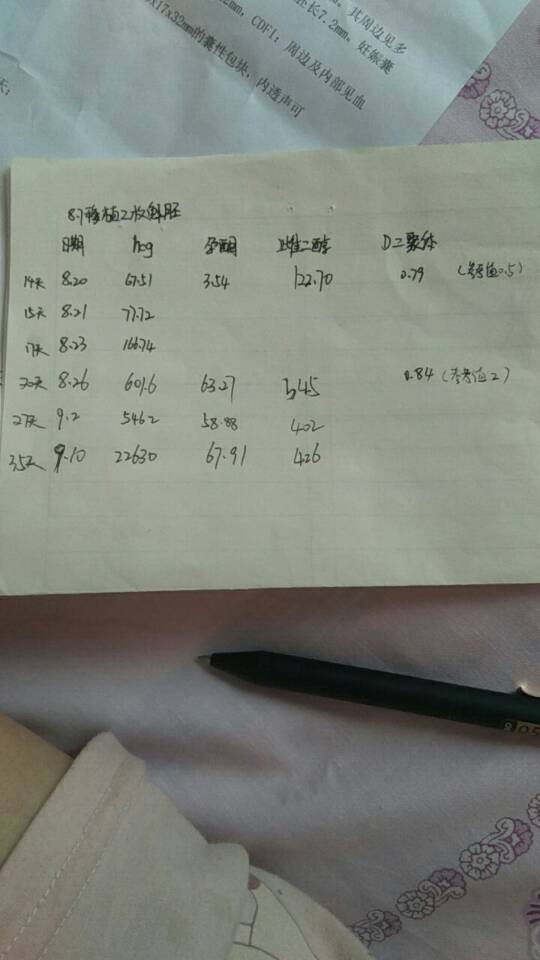 长7.2mm。妊娠囊
mm，CDFI：周边及内部见血
x17x32mm的囊性包块，内透声可
8.7移植2枚鲜胚
日期 hcg 孕酮 雌二醇 D二聚体
14天 8.20 67.51 3.54 122.70 0.79 (参考值0.5)
15天 8.21 77.72
17天 8.23 166.74
20天 8.26 601.6 63.27 345 0.84 (参考值2)
27天 9.2 5462 58.88 402
35天 9.10 22630 67.91 426